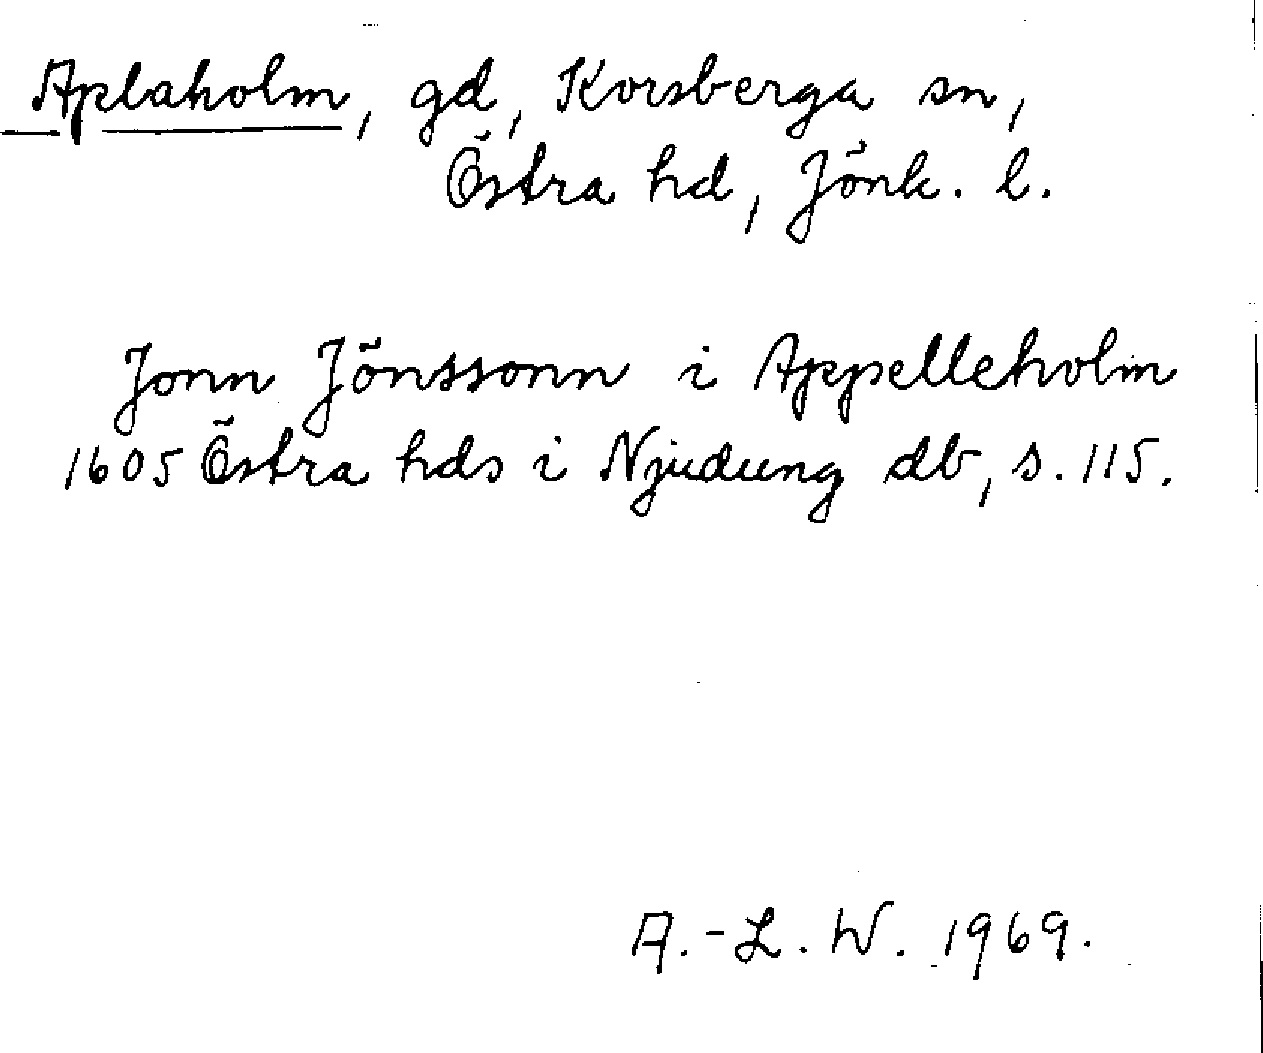 Aplaholm, gd, Korsberga sn,
Östra hd, Jönk. l.
Jonn Jönssonn i Appelleholm
1605 Östra hds i Njudung db, s. 115.
A.-L. W. 1969.